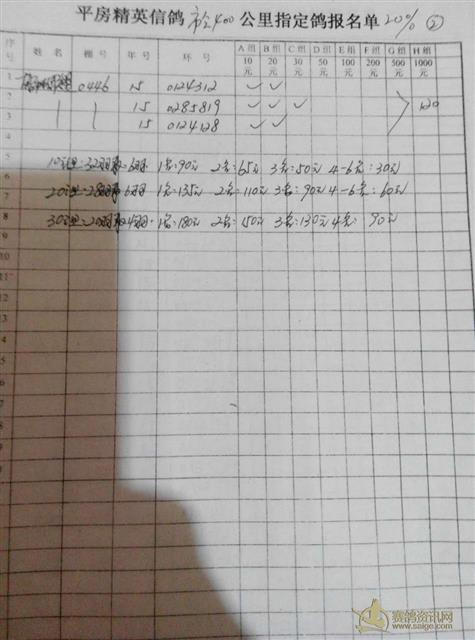 平房精英信鸽 市会400 公里指定鸽报名单 20% ②
序号 姓名 棚号 年号 环号 A组10元 B组20元 C组30元 D组50元 E组100元 F组200元 G组500元 H组1000元
1 0446 15 0124312 ✓ ✓
2 15 0285819 ✓ ✓ ✓ 120
3 15 0124128 ✓ ✓
4
5 10元组:32羽取6羽 1名:90元 2名:65元 3名:50元 4-6名:30元
6
7 20元组:28羽取6羽 1名:135元 2名:110元 3名:90元 4-6名:60元
8 30元组:20羽取4羽 1名:180元 2名:150元 3名:130元 4名:90元
9
10
11
赛鸽资讯网
www.saige.com